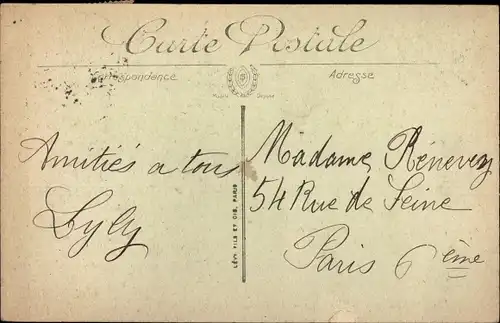 Carte Postale
Correspondance
Adresse
Amitiés a tous
Lyly
Madame Rénevey
54 Rue de Seine
Paris 6ème
LÉVY FILS ET CIE, PARIS